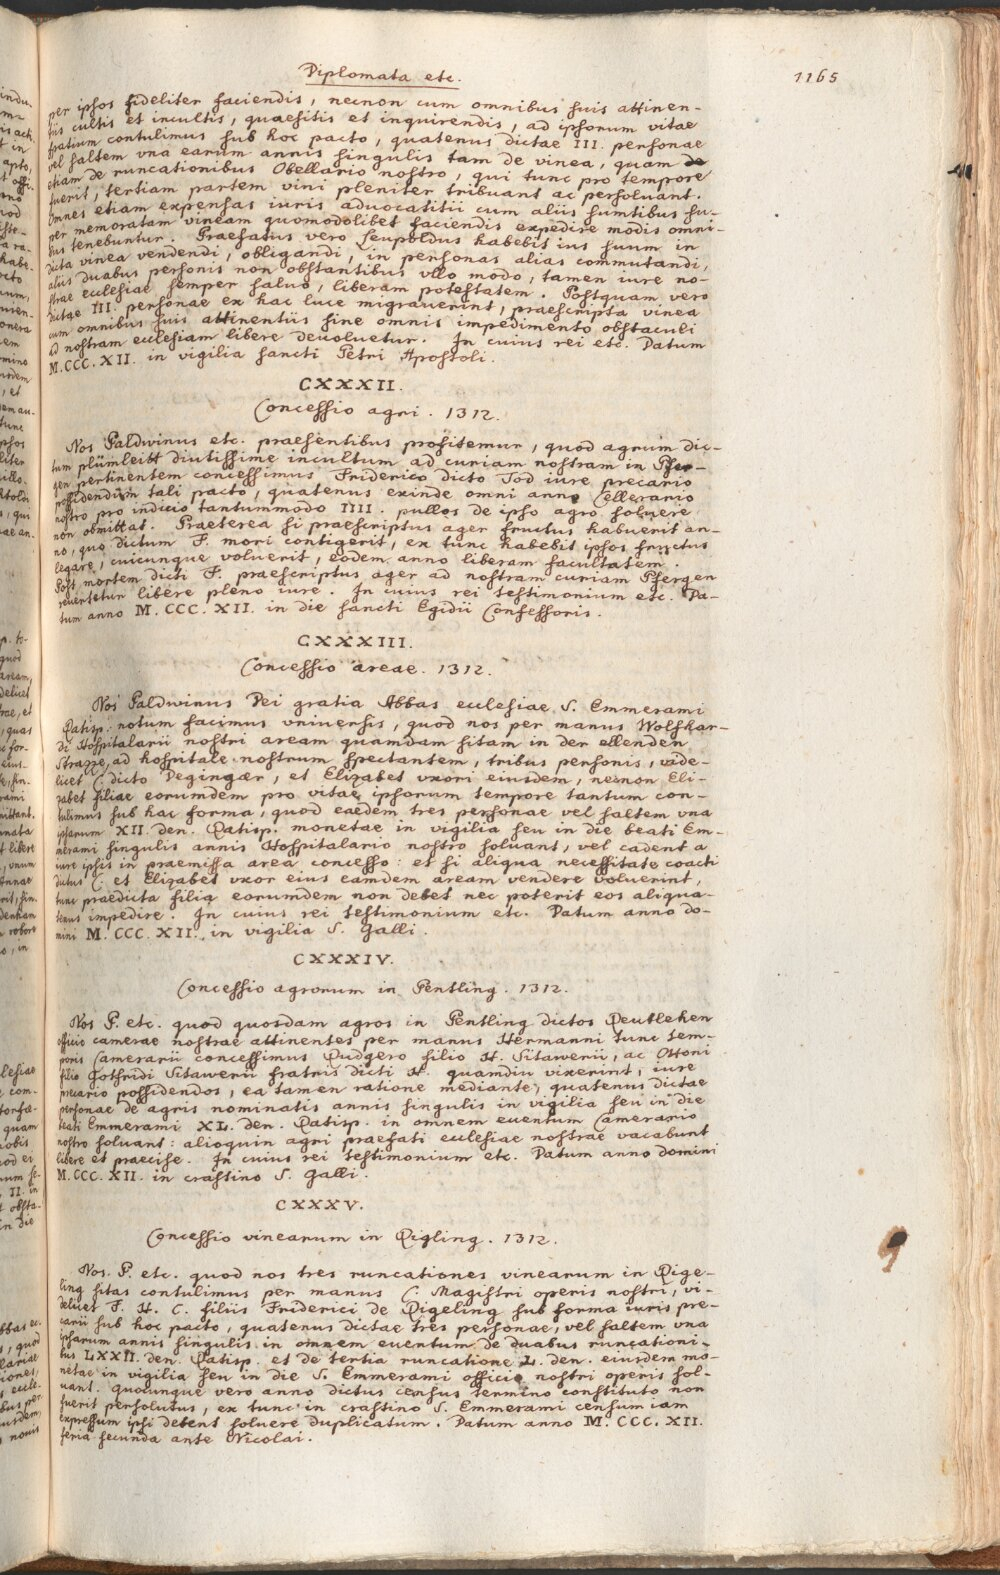 Diplomata etc.
1165
per ipsos fideliter faciendis, necnon cum omnibus suis attinen-
tiis cultis et incultis, quaesitis et inquirendis, ad ipsorum vitae
spatium contulimus sub hoc pacto, quatenus dictae III. personae
vel saltem vna earum annis singulis tam de vinea, quam de
etiam de runcationibus Obellario nostro, qui tunc pro tempore
fuerit, tertiam partem vini pleniter tribuant ac persoluant.
Omnes etiam expensas iuris aduocatitii cum aliis sumtibus su-
per memoratam vineam quomodolibet faciendis expedire modis omni-
bus tenebuntur. Praefatus vero Leupoldus habebit ius suum in
dicta vinea vendendi, obligandi, in personas alias commutandi,
aliis duabus personis non obstantibus vllo modo, tamen iure no-
strae ecclesiae semper saluo, liberam potestatem. Postquam vero
dictae III. personae ex hac luce migrauerint, praescripta vinea
cum omnibus suis attinentiis sine omnis impedimento obstaculi
ad nostram ecclesiam libere deuoluetur. In cuius rei etc. Datum
M.CCC.XII. in vigilia sancti Petri Apostoli.
CXXXII.
Concessio agri. 1312.
Nos Baldwinus etc. praesentibus profitemur, quod agrum dic-
tum plümleitt diutissime incultum ad curiam nostram in Pfer-
gen pertinentem concessimus Friderico dicto Tod iure precario
possidendum tali pacto, quatenus exinde omni anno Cellerario
nostro pro indicio tantummodo IIII. pullos de ipso agro soluere
non obmittat. Praeterea si praescriptus ager fructus habuerit an-
no, quo dictum F. mori contigerit, ex tunc habebit ipsos fructus
legare, cuicunque voluerit, eodem anno liberam facultatem.
Post mortem dicti F. praescriptus ager ad nostram curiam Pfergen
reuertetur libere pleno iure. In cuius rei testimonium etc. Da-
tum anno M. CCC. XII. in die sancti Egidii Confessoris.
CXXXIII.
Concessio areae. 1312.
Nos Baldwinus Dei gratia Abbas ecclesiae S. Emmerami
Ratisp. notum facimus vniuersis, quod nos per manus Wolfhar-
di Hospitalarii nostri aream quamdam sitam in der ellenden
Strazze, ad hospitale nostrum spectantem, tribus personis, vide-
licet C. dicto Deginger, et Elizabet vxori eiusdem, necnon Eli-
zabet filiae eorumdem pro vitae ipsorum tempore tantum con-
tulimus sub hac forma, quod eaedem tres personae vel saltem vna
ipsarum XII. den. Ratisp. monetae in vigilia seu in die beati Em-
merami singulis annis Hospitalario nostro soluant, vel cadent a
iure ipsis in praemissa area concesso: et si aliqua necessitate coacti
dictus C. et Elizabet vxor eius eamdem aream vendere voluerint,
tunc praedicta filia eorumdem non debet nec poterit eos aliqua-
tenus impedire. In cuius rei testimonium etc. Datum anno do-
mini M. CCC. XII. in vigilia S. Galli.
CXXXIV.
Concessio agrorum in Pentling. 1312.
Nos B. etc. quod quosdam agros in Pentling dictos Reutlehen
officio camerae nostrae attinentes per manus Hermanni tunc tem-
poris Camerarii concessimus Rudgero filio H. Sitawerii, ac Ottoni
filio Gotfridi Sitawerii fratris dicti H. quamdiu vixerint, iure
precario possidendos, ea tamen ratione mediante, quatenus dictae
personae de agris nominatis annis singulis in vigilia seu in die
beati Emmerami XL. den. Ratisp. in omnem euentum Camerario
nostro soluant: alioquin agri praefati ecclesiae nostrae vacabunt
libere et praecise. In cuius rei testimonium etc. Datum anno domini
M.CCC.XII. in crastino S. Galli.
CXXXV.
Concessio vinearum in Rigling. 1312.
Nos. B. etc. quod nos tres runcationes vinearum in Rige-
ling sitas contulimus per manus C. Magistri operis nostri, vi-
delicet F. H. C. filiis Friderici de Rigeling sub forma iuris pre-
carii sub hoc pacto, quatenus dictae tres personae, vel saltem vna
ipsarum annis singulis in omnem euentum de duabus runcationi-
bus LXXII. den. Ratisp. et de tertia runcatione L. den. eiusdem mo-
netae in vigilia seu in die S. Emmerami officio nostri operis sol-
uant. quocunque vero anno dictus census termino constituto non
fuerit persolutus, ex tunc in crastino S. Emmerami censum iam
expressum ipsi debent soluere duplicatum. Datum anno M. CCC. XII.
feria secunda ante Nicolai.